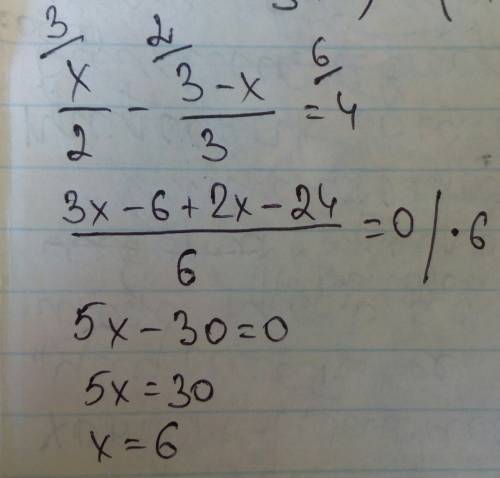 3/ x/2 - 2/ (3-x)/3 = 6/ 4
(3x-6+2x-24)/6 = 0 | · 6
5x-30=0
5x=30
x=6